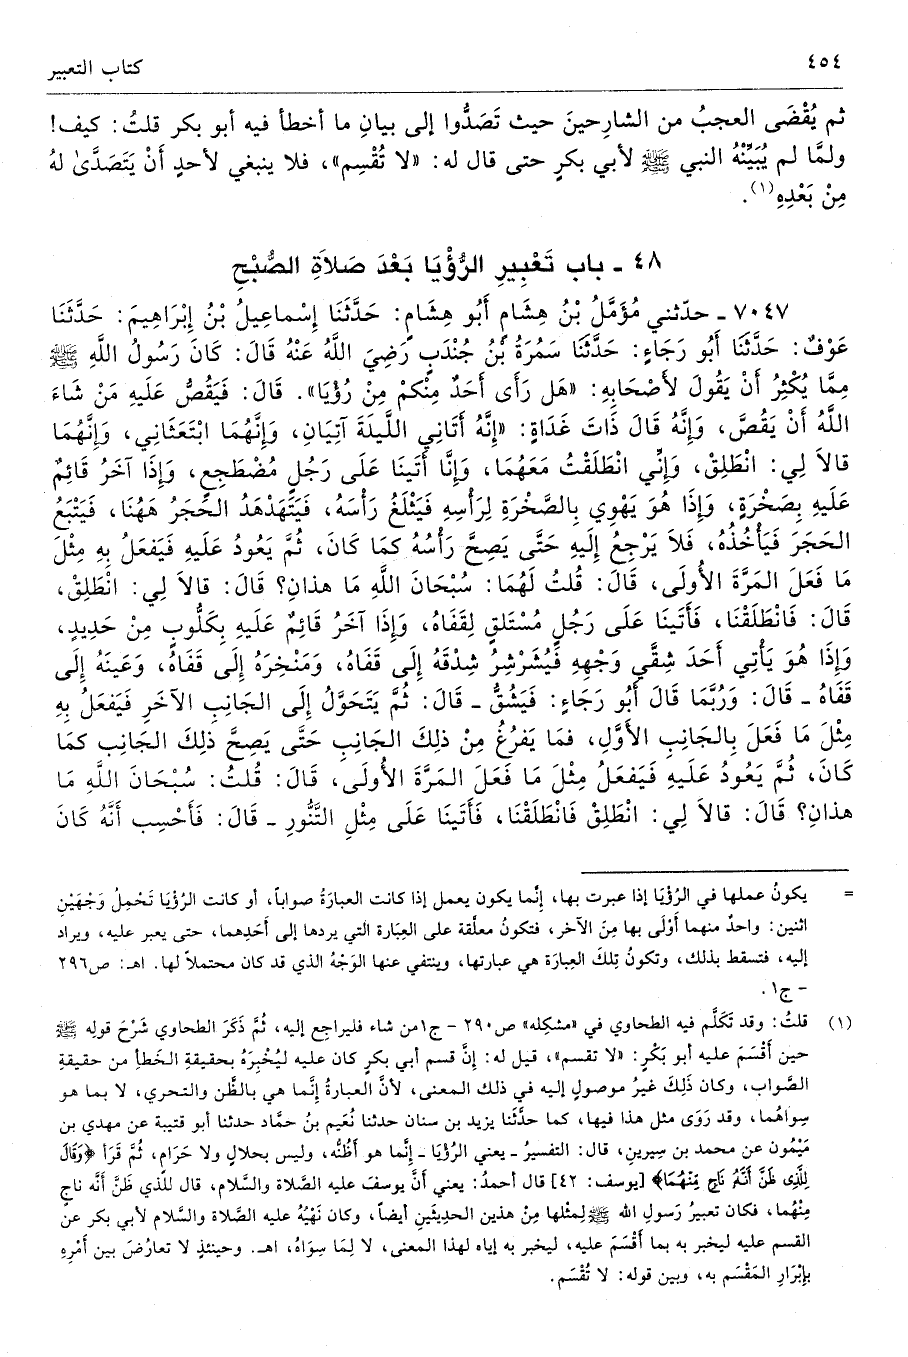 ٤٥٤
كتاب التعبير
ثم يُقْضَى العجبُ من الشارِحينَ حيث تَصَدُّوا إلى بيانِ ما أخطأ فيه أبو بكر قلتُ: كيف!
ولمَّا لم يُبَيِّنْهُ النبي ﷺ لأبي بكرٍ حتى قال له: «لا تُقْسِم»، فلا ينبغي لأحدٍ أنْ يَتَصَدَّىٰ لهُ
مِنْ بَعْدِهِ(١).
٤٨ ـ باب تَعْبِيرِ الرُّؤْيَا بَعْدَ صَلَاةِ الصُّبْحِ
٧٠٤٧ ـ حدّثني مُؤَمَّلُ بْنُ هِشَامٍ أَبُو هِشَامٍ: حَدَّثَنَا إِسْماعِيلُ بْنُ إِبْرَاهِيمَ: حَدَّثَنَا
عَوْفٌ: حَدَّثَنَا أَبُو رَجَاءٍ: حَدَّثَنَا سَمُرَةُ بْنُ جُنْدَبٍ رَضِيَ اللَّهُ عَنْهُ قَالَ: كَانَ رَسُولُ اللَّهِ ﷺ
مِمَّا يُكْثِرُ أَنْ يَقُولَ لأَصْحَابِهِ: «هَل رَأَى أَحَدٌ مِنْكُمْ مِنْ رُؤْيَا». قَالَ: فَيَقُصُّ عَلَيهِ مَنْ شَاءَ
اللَّهُ أَنْ يَقُصَّ، وَإِنَّهُ قَالَ ذَاتَ غَدَاةٍ: «إِنَّهُ أَتَانِي اللَّيلَةَ آتِيَانِ، وَإِنَّهُمَا ابْتَعَثَانِي، وَإِنَّهُمَا
قَالَا لِي: انْطَلِقْ، وَإِنِّي انْطَلَقْتُ مَعَهُمَا، وَإِنَّا أَتَينَا عَلَى رَجُلٍ مُضْطَجِعٍ، وَإِذَا آخَرُ قَائِمٌ
عَلَيهِ بِصَخْرَةٍ، وَإِذَا هُوَ يَهْوِي بِالصَّخْرَةِ لِرَأْسِهِ فَيَثْلَغُ رَأْسَهُ، فَيَتَهَدْهَدُ الحَجَرُ هَهُنَا، فَيَتْبَعُ
الحَجَرَ فَيَأْخُذُهُ، فَلَا يَرْجِعُ إِلَيهِ حَتَّى يَصِحَّ رَأْسُهُ كَمَا كَانَ، ثُمَّ يَعُودُ عَلَيهِ فَيَفْعَلُ بِهِ مِثْلَ
مَا فَعَلَ المَرَّةَ الأُولَى، قَالَ: قُلتُ لَهُمَا: سُبْحَانَ اللَّهِ مَا هذانِ؟ قَالَ: قالَا لِي: انْطَلِقْ،
قَالَ: فَانْطَلَقْنَا، فَأَتَينَا عَلَى رَجُلٍ مُسْتَلقٍ لِقَفَاهُ، وَإِذَا آخَرُ قَائِمٌ عَلَيهِ بِكَلُّوبٍ مِنْ حَدِيدٍ،
وَإِذَا هُوَ يَأْتِي أَحَدَ شِقَّي وَجْهِهِ فَيُشَرْشِرُ شِدْقَهُ إِلَى قَفَاهُ، وَمَنْخِرَهُ إِلَى قَفَاهُ، وَعَينَهُ إِلَى
قَفَاهُ ـ قَالَ: وَرُبَّمَا قَالَ أَبُو رَجَاءٍ: فَيَشُقُّ ـ قَالَ: ثُمَّ يَتَحَوَّلُ إِلَى الجَانِبِ الآخَرِ فَيَفعَلُ بِهِ
مِثْلَ مَا فَعَلَ بِالجَانِبِ الأَوَّلِ، فَمَا يَفرُغُ مِنْ ذلِكَ الجَانِبِ حَتَّى يَصِحَّ ذلِكَ الجَانِبُ كَمَا
كَانَ، ثُمَّ يَعُودُ عَلَيهِ فَيَفْعَلُ مِثْلَ مَا فَعَلَ المَرَّةَ الأُولَى، قَالَ: قُلتُ: سُبْحَانَ اللَّهِ مَا
هذانِ؟ قَالَ: قالَا لِي: انْطَلِقْ فَانْطَلَقْنَا، فَأَتَينَا عَلَى مِثْلِ التَّنُّورِ ـ قَالَ: فَأَحْسِب أَنَّهُ كَانَ
= يكونُ عملها في الرُؤْيَا إذا عبرت بها، إنَّما يكون يعمل إذا كانت العبارَةُ صواباً، أو كانت الرُؤيَا تَحْمِلُ وَجْهَيْنِ
اثنين: واحدٌ منهما أَوْلَى بها مِنَ الآخر، فتكونُ معلَّقة على العِبَارة التي يردها إلى أَحَدِهما، حتى يعبر عليه، ويراد
إليه، فتسقط بذلك، وتكونُ تِلْكَ العِبارة هي عبارتها، وينتفي عنها الوَجْهُ الذي قد كان محتملاً لها. اهـ: ص٢٩٦
- ج١.
(١) قلتُ: وقد تَكَلَّم فيه الطحاوي في «مشكله» ص٢٩٠ - ج١من شاء فليراجِع إليه، ثُمَّ ذَكَرَ الطحاوي شَرْحَ قولِهِ ﷺ
حين أَقْسَمَ عليه أبو بَكْرٍ: «لا تقسم»، قيل له: إنَّ قسم أبي بكرٍ كان عليه ليُخْبِرَهُ بحقيقةِ الخَطَأِ من حقيقةِ
الصَّواب، وكان ذَلِكَ غيرُ موصولٍ إليه في ذلك المعنى، لأنَّ العبارةَ إنَّما هي بالظَّن والتحري، لا بما هو
سِواهُما، وقد رَوَى مثل هذا فيها، كما حدَّثَنا يزيد بن سنان حدثنا نُعَيم بنُ حمَّاد حدثنا أبو قتيبة عن مهدي بن
مَيْمُون عن محمد بن سِيرين، قال: التفسيرُ ـ يعني الرُؤْيَا ـ إنَّما هو أظُنُّه، وليس بحلالٍ ولا حَرَام، ثُمَّ قَرَأَ ﴿وَقَالَ
لِلَّذِي ظَنَّ أَنَّهُ نَاجٍ مِّنْهُمَا﴾ [يوسف: ٤٢] قال أحمدُ: يعني أنَّ يوسفَ عليه الصَّلاة والسَّلام، قال للذي ظَنَّ أنَّه ناجٍ
مِنْهُما، فكان تعبيرُ رَسولِ الله ﷺ لِمثْلها مِنْ هذين الحديثَين أيضاً، وكان نَهْيُهُ عليه الصَّلاة والسَّلام لأبي بكر عن
القسم عليه ليخبر به بما أَقْسَمَ عليه، ليخبر به إياه لهذا المعنى، لا لِمَا سِوَاهُ، اهـ. وحينئذٍ لا تعارُضَ بين أَمْرِهِ
بإِبْرَارِ المَقْسَم به، وبين قوله: لا تُقْسَم.